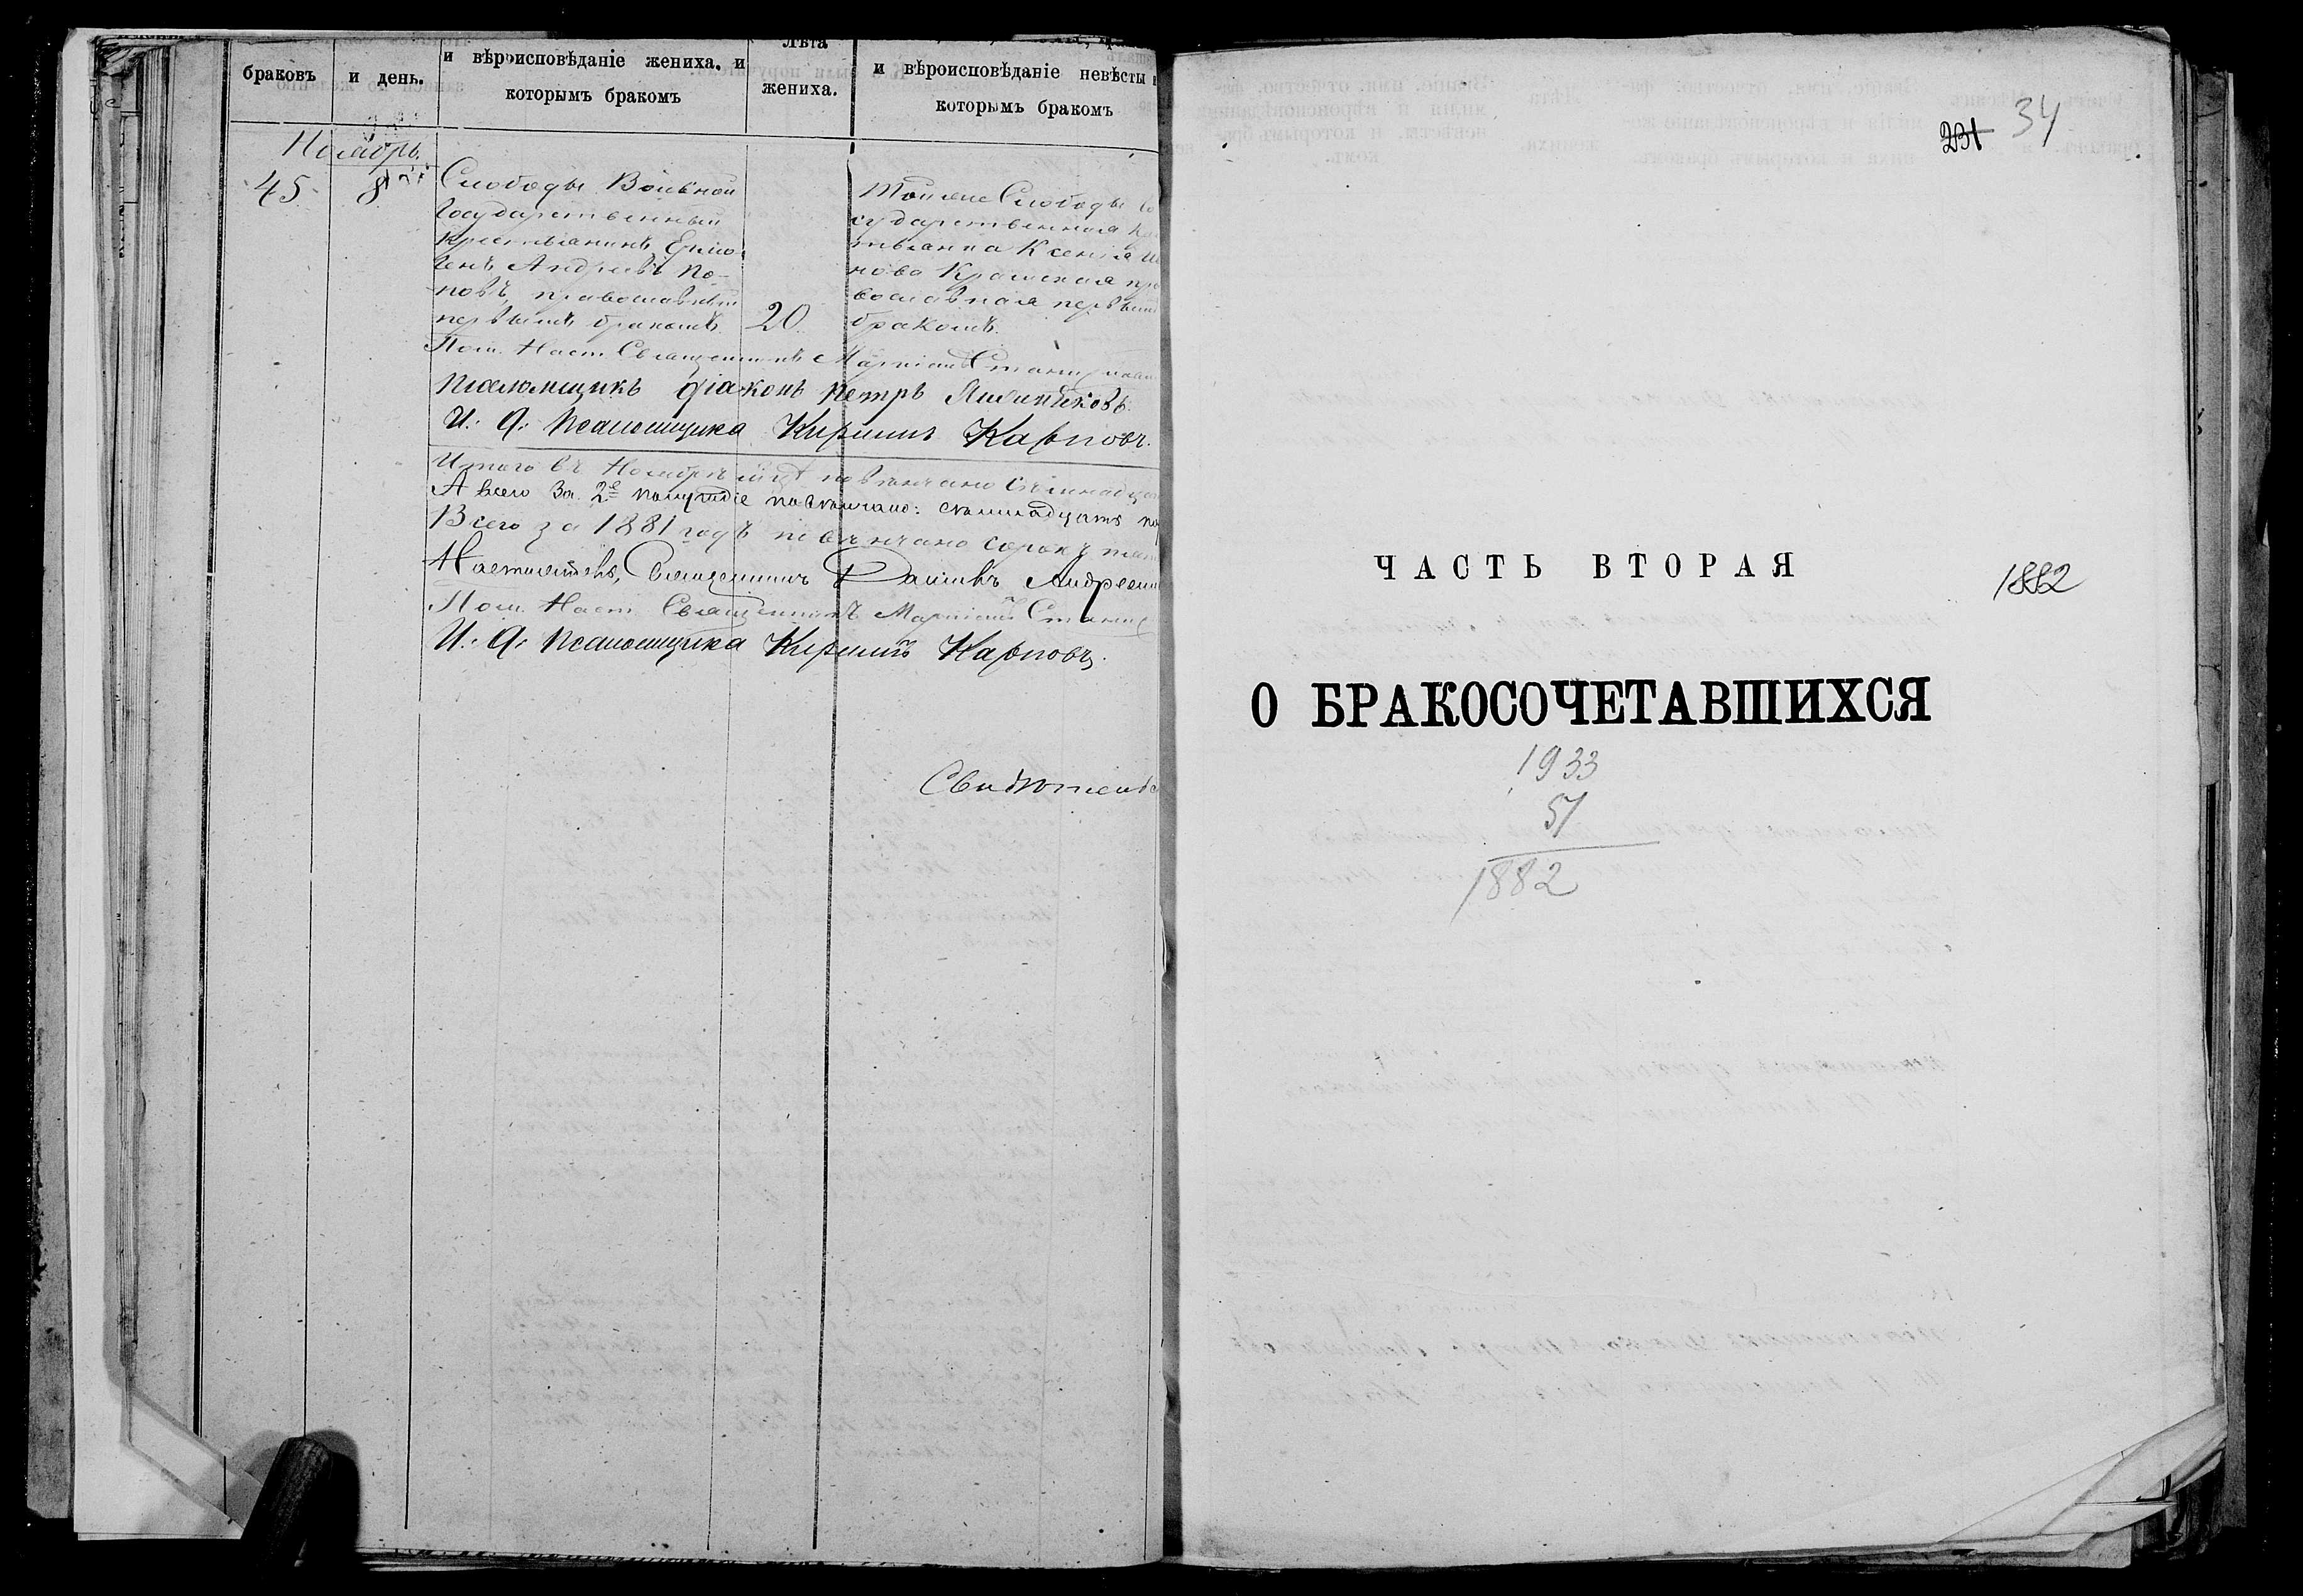 браковъ
и день.
и вѣроисповѣданіе жениха. и
которымъ бракомъ
Лѣта
жениха.
и вѣроисповѣданіе невѣсты и
которымъ бракомъ
Ноябрь.
45
8
Слободы Вольной
Государственный
крестьянинъ Ермо-
генъ Андреевъ По-
повъ, православный
первымъ бракомъ
20
Тойже Слободы Го
сударственная кре
стьянка Ксенія
нова Крамская пра
вославная первымъ
бракомъ.
Пом. Наст. Священникъ
Псаломщикъ діаконъ Петръ
И. д. Псаломщика Кириллъ Карповъ.
Итого въ Ноябрѣ повѣнчано
А всего за 2е полугодіе повѣнчано: семнадцать
Всего за 1881 годъ повѣнчано сорокъ пять
Настоятель, Священникъ Андреев
Пом. Наст. Священникъ
И. д. Псаломщика Кириллъ Карповъ.
Свидѣтельс
231 34
ЧАСТЬ ВТОРАЯ
1882
О БРАКОСОЧЕТАВШИХСЯ
1933
51
1882